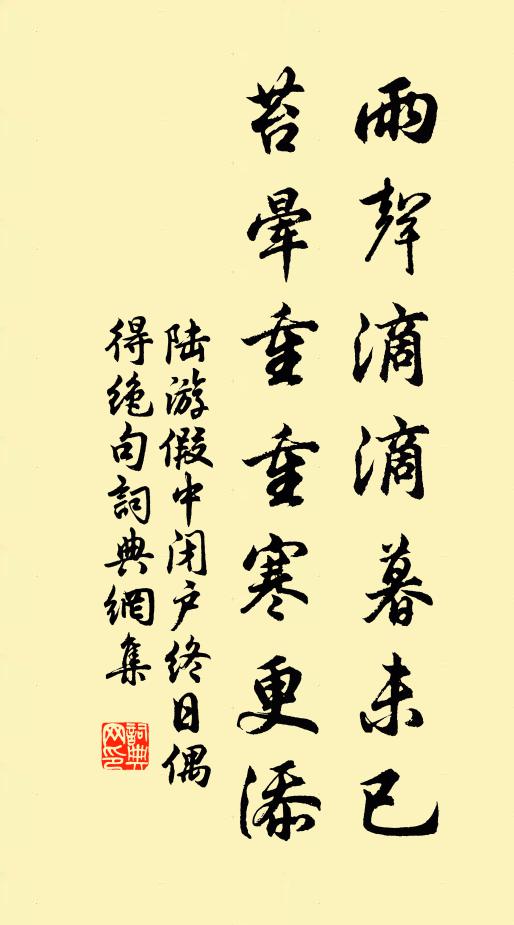 雨聲滴滴暮未已
苔暈重重寒更添
陆游假中闭户终日偶
得绝句詞典網集
詞典网印